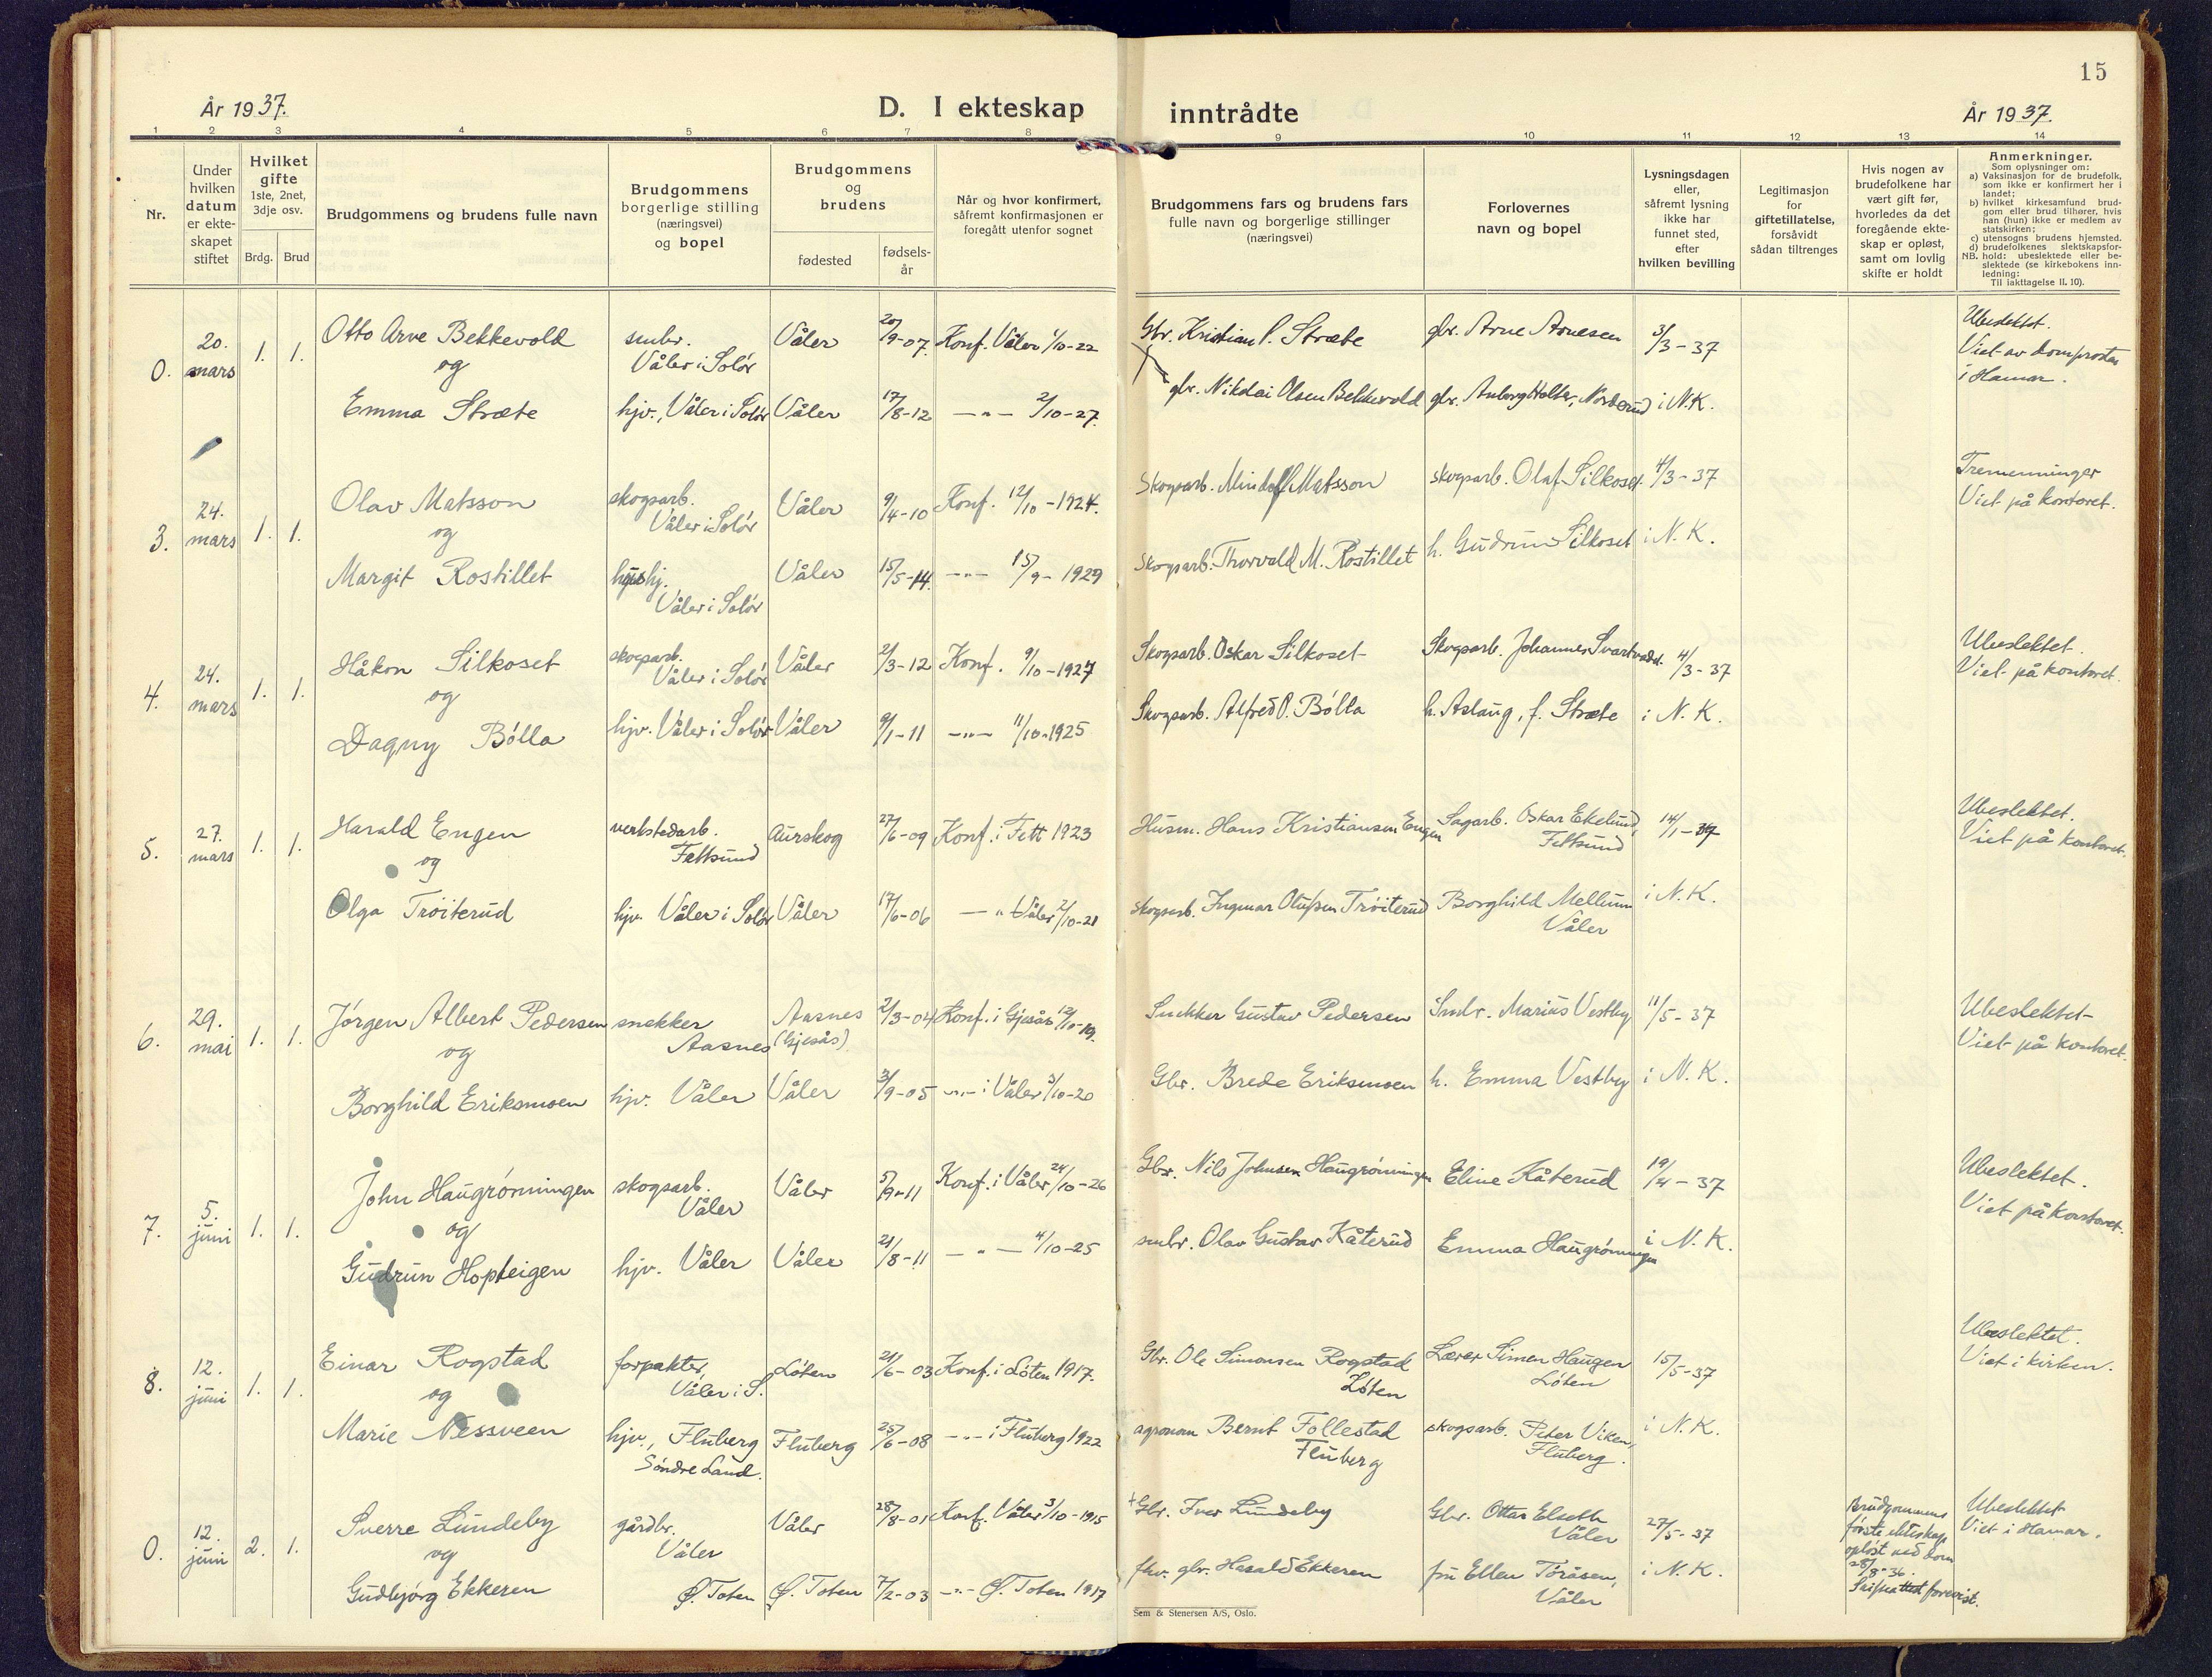 15
År 1937.
D. I ekteskap inntrådte
År 1937.
1 2 3 4 5 6 7 8 9 10 11 12 13 14
Nr.
Under hvilken datum er ekte-skapet stiftet
Hvilket gifte 1ste, 2net, 3dje osv.
Brdg. Brud
Brudgommens og brudens fulle navn
Brudgommens borgerlige stilling (næringsvei) og bopel
Brudgommens og brudens
fødested
fødsels-år
Når og hvor konfirmert, såfremt konfirmasjonen er foregått utenfor sognet
Brudgommens fars og brudens fars fulle navn og borgerlige stillinger (næringsvei)
Forlovernes navn og bopel
Lysningsdagen eller, såfremt lysning ikke har funnet sted, efter hvilken bevilling
Legitimasjon for giftetillatelse, forsåvidt sådan tiltrenges
Hvis nogen av brudefolkene har vært gift før, hvorledes da det foregående ekte-skap er opløst, samt om lovlig skifte er holdt
Anmerkninger.
Som oplysninger om:
a) Vaksinasjon for de brudefolk, som ikke er konfirmert her i landet;
b) hvilket kirkesamfund brud-gom eller brud tilhører, hvis han (hun) ikke er medlem av statskirken;
c) utensogns brudens hjemsted.
d) brudefolkenes slektskapsfor-
NB. hold: ubeslektede eller be-slektede (se kirkebokens inn-ledning:
Til iakttagelse II. 10).
0. 20. mars 1. 1. Otto Arve Bekkevold smbr. Våler i Solør Våler 20/9-07. Konf. Våler 1/10-22 Gbr. Kristian P. Stræte gbr. Arne Arnesen 3/3-37 Ubeslektet. Viet av domprosten i Hamar.
og
Emma Stræte hjv., Våler i Solør Våler 17/8-12 —"— 2/10-27. gbr. Nikolai Olsen Bekkevold gbr. Holter, i N.K.
3. 24. mars 1. 1. Olav Matsson skogsarb. Våler i Solør Våler 9/4-10 Konf. 12/10-1924. Skogsarb. Matsson skogsarb. Olaf Silkoset. 4/3-37 Tremenninger Viet på kontoret.
og
Margit Rostillet hushj. Våler i Solør Våler 15/5-14. —"— 15/9-1929 Skogsarb. Thorvald M. Rostillet h. Gudrun Silkoset i N.K.
4. 24. mars 1. 1. Håkon Silkoset skogsarb. Våler i Solør Våler 2/3-12 Konf. 9/10-1927 Skogsarb. Oskar Silkoset Skogsarb. Johannes 4/3-37 Ubeslektet. Viet på kontoret.
og
Dagny Bölla hjv. Våler i Solør Våler 9/1-11 —"— 11/10-1925 Skogsarb. Alfred O. Bölla h. Aslaug, f. Stræte i N.K.
5. 27. mars 1. 1. Harald Engen verkstedarb. Fetsund Aurskog 27/6-09 Konf. i Fett 1923 Husm. Hans Kristiansen Engen Sagarb. Oskar Ekelund, Fetsund 14/1-37 Ubeslektet. Viet på kontoret.
og
Olga Tröiterud hjv. Våler i Solør Våler 17/6-06 —"— Våler 2/10-21 skogsarb. Ingmar Olufsen Tröiterud Borghild Mellum Våler i N.K.
6. 29. mai 1. 1. Jörgen Albert Pedersen snekker Aasnes Aasnes (Gjesås) 2/3-04 Konf. i Gjesås 12/10-19. Snekker Gustav Pedersen Smbr. Marius Vestby 11/5-37 Ubeslektet Viet på kontoret.
og
Borghild Eriksmoen hjv. Våler Våler 3/9-05 —"— i Våler 3/10-20 Gbr. Brede Eriksmoen h. Emma Vestby i N.K.
7. 5. juni 1. 1. John Haugrönningen skogsarb. Våler Våler 5/9-11 Konf. i Våler 24/10-26 Gbr. Nils Johnsen Haugrönningen Eline Kåterud 19/4-37 Ubeslektet. Viet på kontoret.
og
Gudrun Hopteigen hjv. Våler Våler 21/8-11 —"— 4/10-25 smbr. Olav Gustav Kåterud Emma Haugrönningen i N.K.
8. 12. juni 1. 1. Einar Rogstad forpakter, Våler i S. Löten 21/6-03 Konf. i Löten 1917. Gbr. Ole Simonsen Rogstad Löten Lærer Simen Haugen Löten 15/5-37 Ubeslektet. Viet i kirken.
og
Marie Nessveen hjv., Fluberg Söndre Land. Fluberg 25/6-08 —"— i Fluberg 1922 agronom Bernt Follestad Fluberg skogsarb. Peter Viken, Fluberg. i N.K.
0. 12. juni 2. 1. Sverre Lundeby gårdbr. Våler Våler 28/8-01 Konf. Våler 3/10-1915 Gbr. Iver Lundeby Gbr. Ottar Elseth Våler 27/5-37 Brudgommens første ekteskap opløst ved dom 28/8-36. forevist. Ubeslektet Viet i Hamar.
og
Gudbjörg Ekkeren Ø. Toten Ø. Toten 7/2-03 —"— Ø. Toten 1917 fhv. gbr. Harald Ekkeren fru Ellen Töråsen, Våler i N.K.
Sem & Stenersen A/S, Oslo.